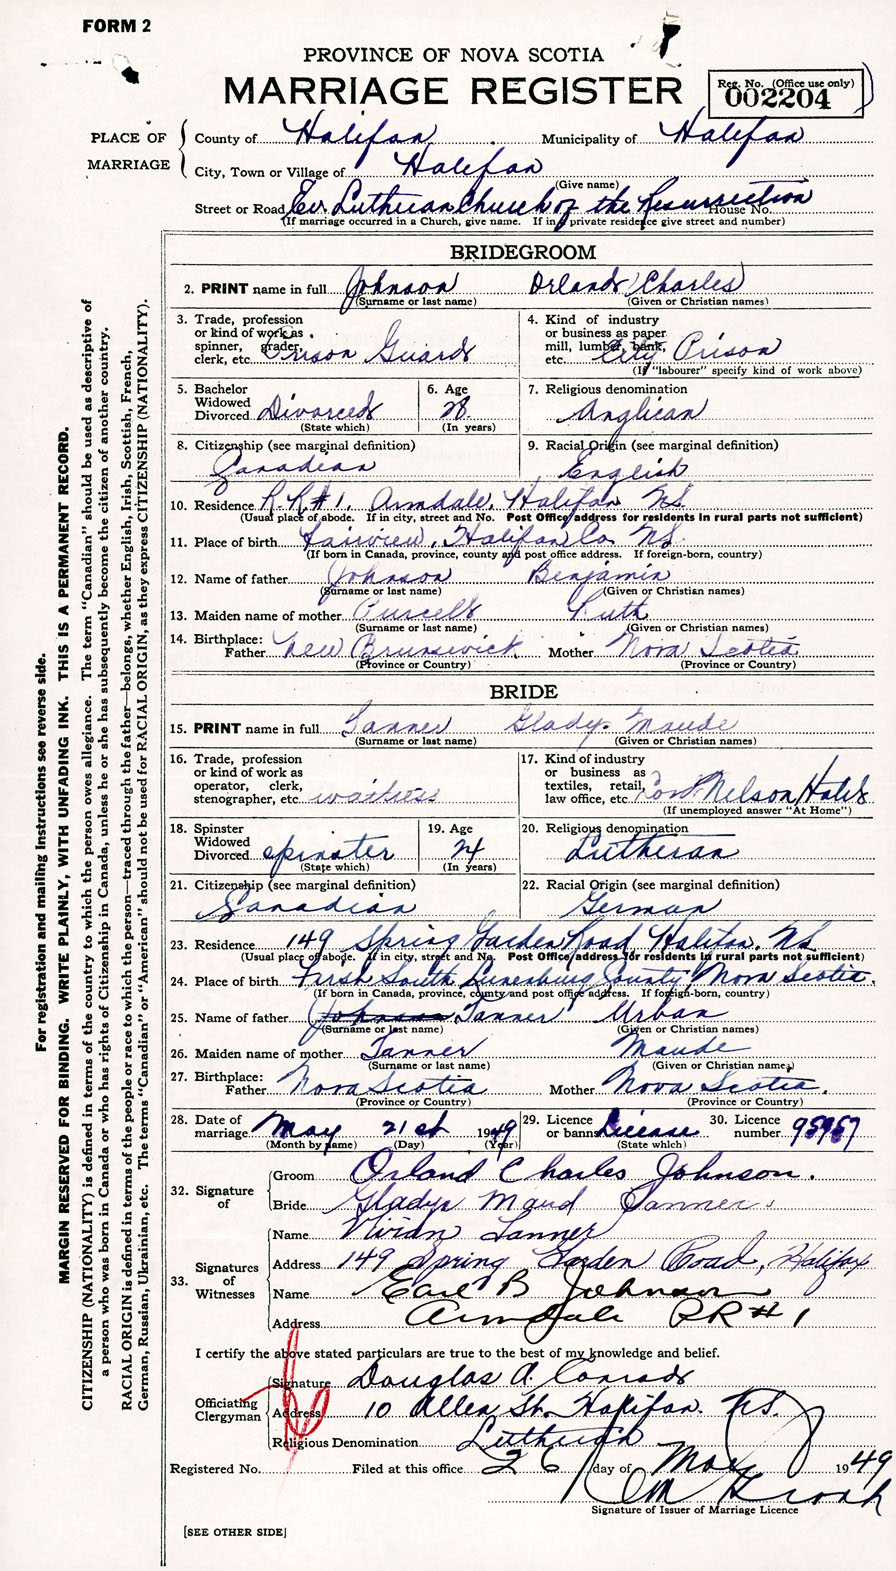 FORM 2
PROVINCE OF NOVA SCOTIA
MARRIAGE REGISTER
Reg. No. (Office use only)
002204
PLACE OF MARRIAGE
County of Halifax Municipality of Halifax
City, Town or Village of Halifax
(Give name)
Street or Road Ev. Lutheran Church of the Resurrection House No.
(If marriage occurred in a Church, give name. If in private residence give street and number)
BRIDEGROOM
2. PRINT name in full Johnson Orland Charles
(Surname or last name) (Given or Christian names)
3. Trade, profession or kind of work as spinner, grader, clerk, etc. Prison Guard
4. Kind of industry or business as paper mill, lumber, bank, etc. City Prison
(If "labourer" specify kind of work above)
5. Bachelor Widowed Divorced Divorced
(State which)
6. Age 28
(In years)
7. Religious denomination
Anglican
8. Citizenship (see marginal definition)
Canadian
9. Racial Origin (see marginal definition)
English
10. Residence R.R.#1. Armdale. Halifax NS.
(Usual place of abode. If in city, street and No. Post Office address for residents in rural parts not sufficient)
11. Place of birth Fairview, Halifax Co. NS.
(If born in Canada, province, county and post office address. If foreign-born, country)
12. Name of father Johnson Benjamin
(Surname or last name) (Given or Christian names)
13. Maiden name of mother Purcell Ruth
(Surname or last name) (Given or Christian names)
14. Birthplace: Father New Brunswick Mother Nova Scotia
(Province or Country) (Province or Country)
BRIDE
15. PRINT name in full Tanner Gladys Maude
(Surname or last name) (Given or Christian names)
16. Trade, profession or kind of work as operator, clerk, stenographer, etc waitress
17. Kind of industry or business as textiles, retail, law office, etc Lord Nelson Hotel
(If unemployed answer "At Home")
18. Spinster Widowed Divorced spinster
(State which)
19. Age 24
(In years)
20. Religious denomination
Lutheran
21. Citizenship (see marginal definition)
Canadian
22. Racial Origin (see marginal definition)
German
23. Residence 149 Spring Garden Road Halifax. NS
(Usual place of abode. If in city, street and No. Post Office address for residents in rural parts not sufficient)
24. Place of birth First South Lunenburg County, Nova Scotia.
(If born in Canada, province, county and post office address. If foreign-born, country)
25. Name of father Johnson Tanner Urban
(Surname or last name) (Given or Christian names)
26. Maiden name of mother Tanner Maude
(Surname or last name) (Given or Christian name,)
27. Birthplace: Father Nova Scotia Mother Nova Scotia.
(Province or Country) (Province or Country)
28. Date of marriage May 21st 1949
(Month by name) (Day) (Year)
29. Licence or banns License
(State which)
30. Licence number 95957
32. Signature of
Groom Orland Charles Johnson.
Bride Gladys Maud Tanner.
33. Signatures of Witnesses
Name Vivian Tanner
Address 149 Spring Garden Road, Halifax
Name Earl B Johnson
Address Armdale RR#1
I certify the above stated particulars are true to the best of my knowledge and belief.
Officiating Clergyman
Signature Douglas A. Conrad
Address 10 Allen St. Halifax. N.S.
Religious Denomination Lutheran
Registered No. Filed at this office 26 day of May 1949
Signature of Issuer of Marriage Licence
[SEE OTHER SIDE]
For registration and mailing instructions see reverse side.
MARGIN RESERVED FOR BINDING. WRITE PLAINLY, WITH UNFADING INK. THIS IS A PERMANENT RECORD.
CITIZENSHIP (NATIONALITY) is defined in terms of the country to which the person owes allegiance. The term "Canadian" should be used as descriptive of
a person who was born in Canada or who has rights of Citizenship in Canada, unless he or she has subsequently become the citizen of another country.
RACIAL ORIGIN is defined in terms of the people or race to which the person—traced through the father—belongs, whether English, Irish, Scottish, French,
German, Russian, Ukrainian, etc. The terms "Canadian" or "American" should not be used for RACIAL ORIGIN, as they express CITIZENSHIP (NATIONALITY).